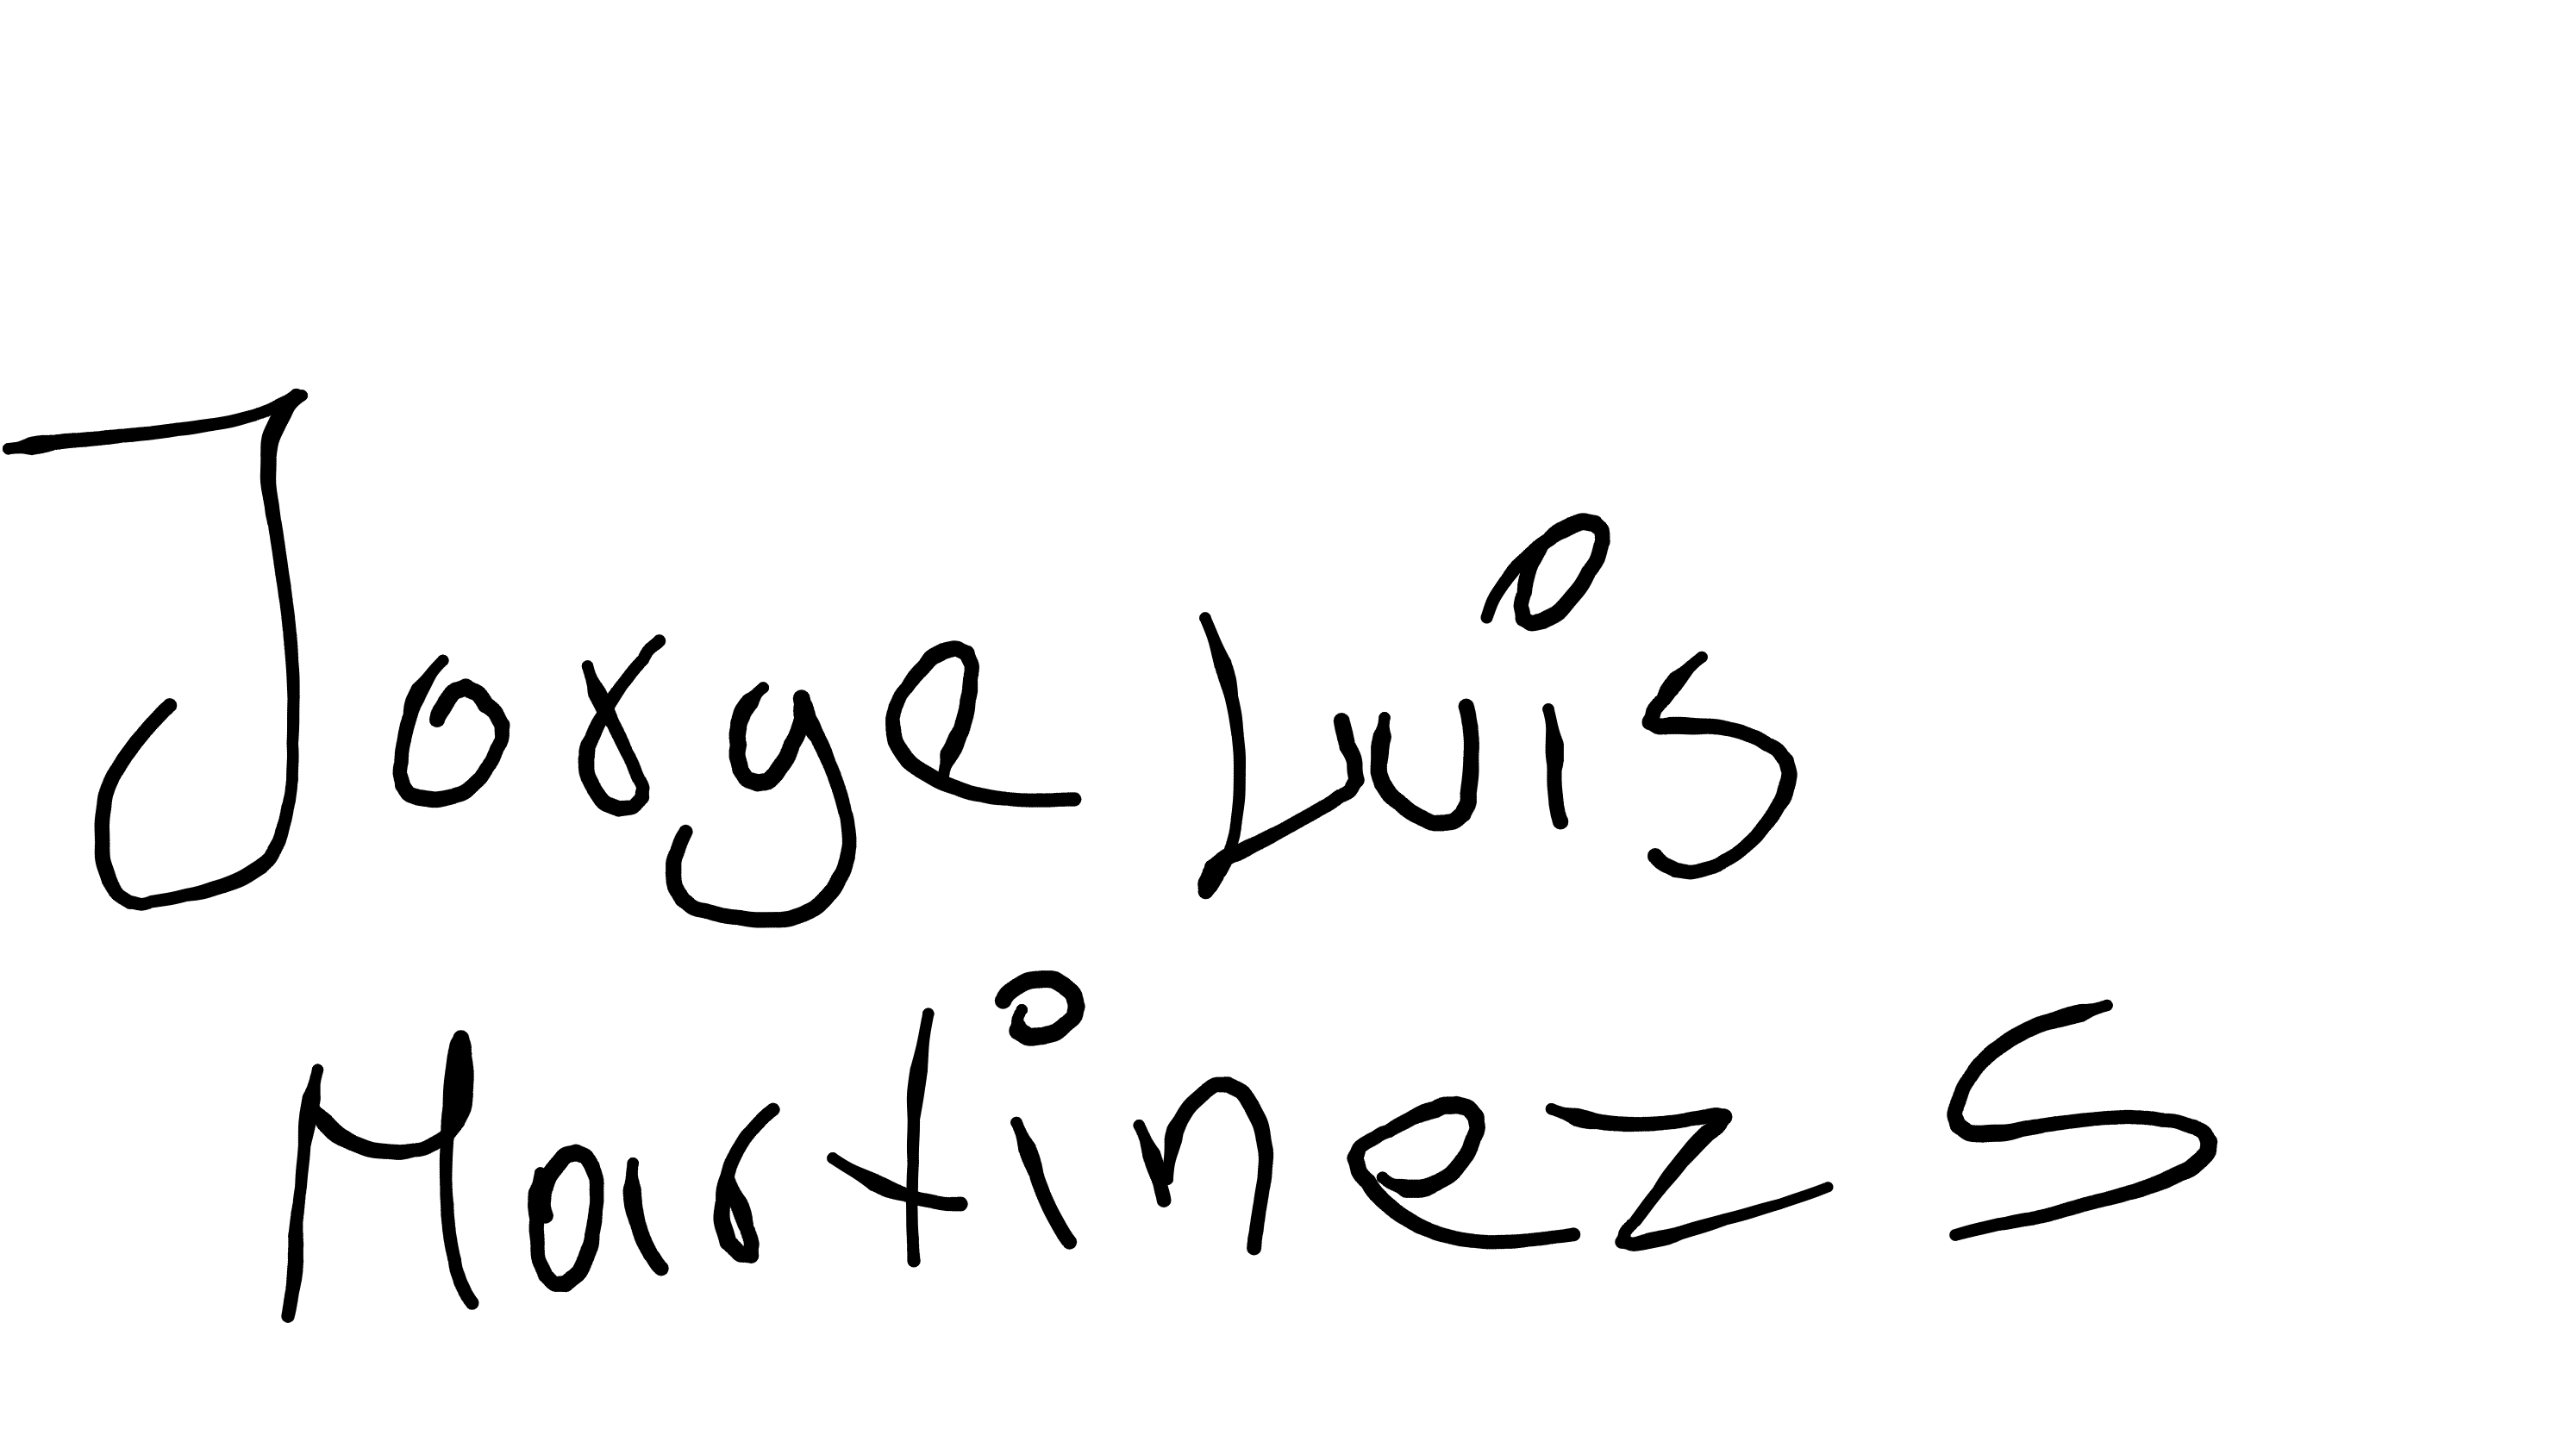 Jorge Luis
Martinez S